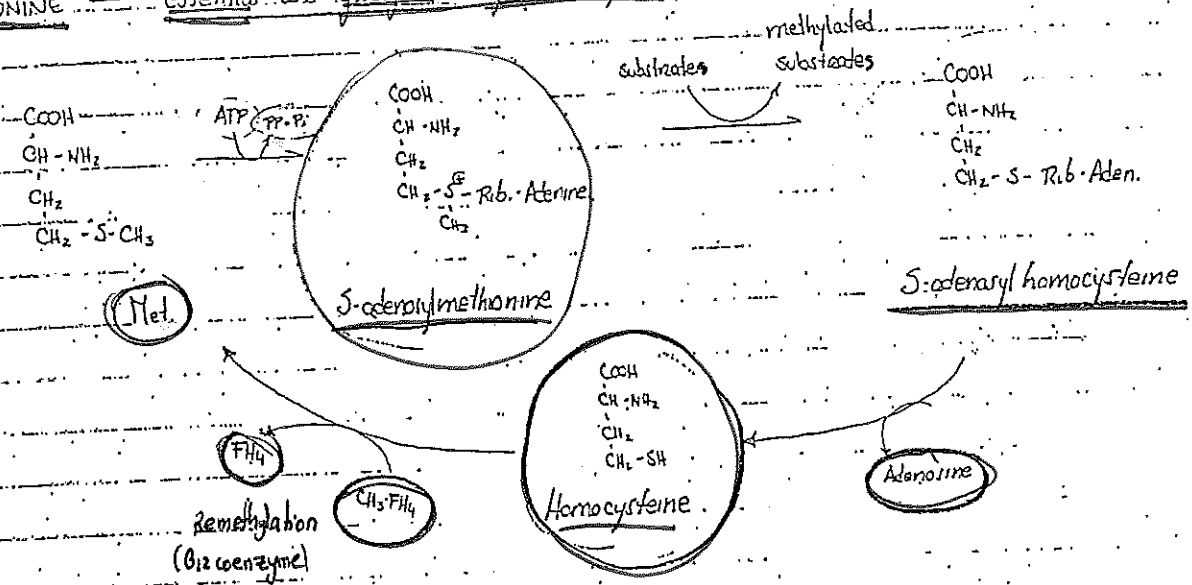 ESSENTIAL
methylated
substrates
substrates
COOH
CH-NH2
CH2
CH2-S-CH3
Met.
ATP
PP+Pi
COOH
CH-NH2
CH2
CH2-S⊕-Rib.-Adenine
CH3
S-adenosylmethionine
COOH
CH-NH2
CH2
CH2-S-Rib.Aden.
S-adenosyl homocysteine
COOH
CH-NH2
CH2
CH2-SH
Homocysteine
Adenosine
FH4
CH3-FH4
Remethylation
(B12 coenzyme)